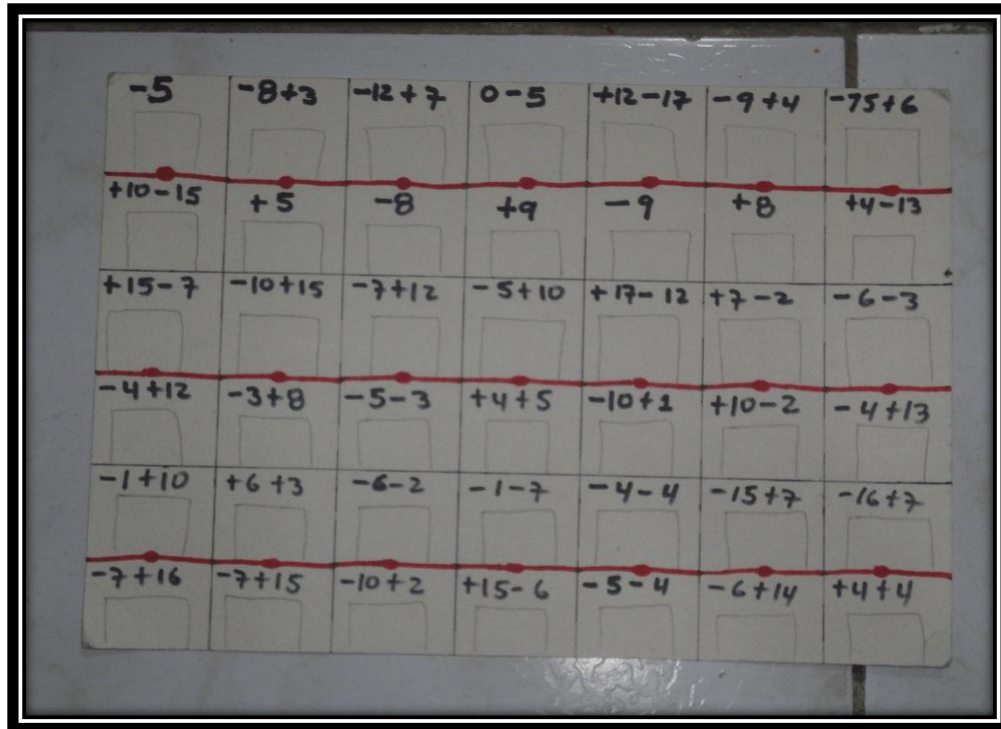 -5 -8+3 -12+7 0-5 +12-17 -9+4 -75+6
+10-15 +5 -8 +9 -9 +8 +4-13
+15-7 -10+15 -7+12 -5+10 +17-12 +7-2 -6-3
-4+12 -3+8 -5-3 +4+5 -10+1 +10-2 -4+13
-1+10 +6+3 -6-2 -1-7 -4-4 -15+7 -16+7
-7+16 -7+15 -10+2 +15-6 -5-4 -6+14 +4+4